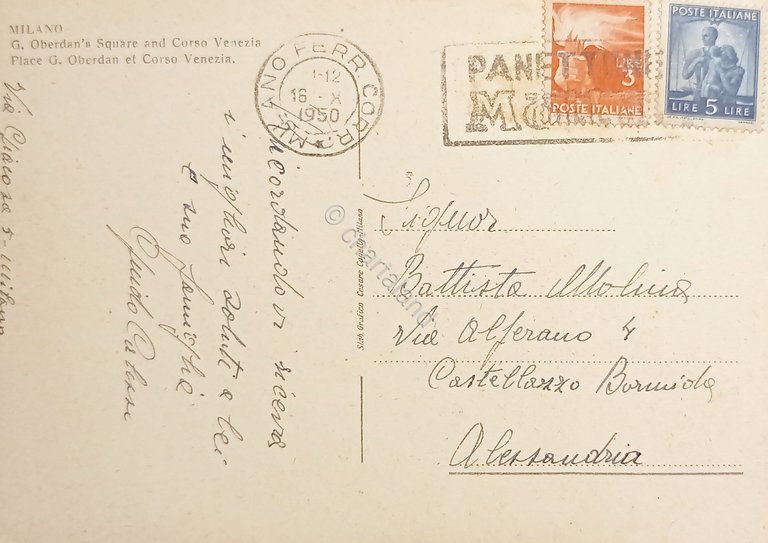 MILANO
G. Oberdan's Square and Corso Venezia
Place G. Oberdan et Corso Venezia.
MILANO FERR. CORR.
1-12
16 - X
1950
PANETTONE
LIRE 3
POSTE ITALIANE
POSTE ITALIANE
LIRE 5 LIRE
Ricordandovi riceva
i migliori saluti a lei
e sua famiglia
Guido
Via Giacosa 5 - Milano
Stab. Grafico Cesare Capello-Milano
Signor
Battista Molina
Via Alferano 4
Castellazzo Bormida
Alessandria
© chartaland